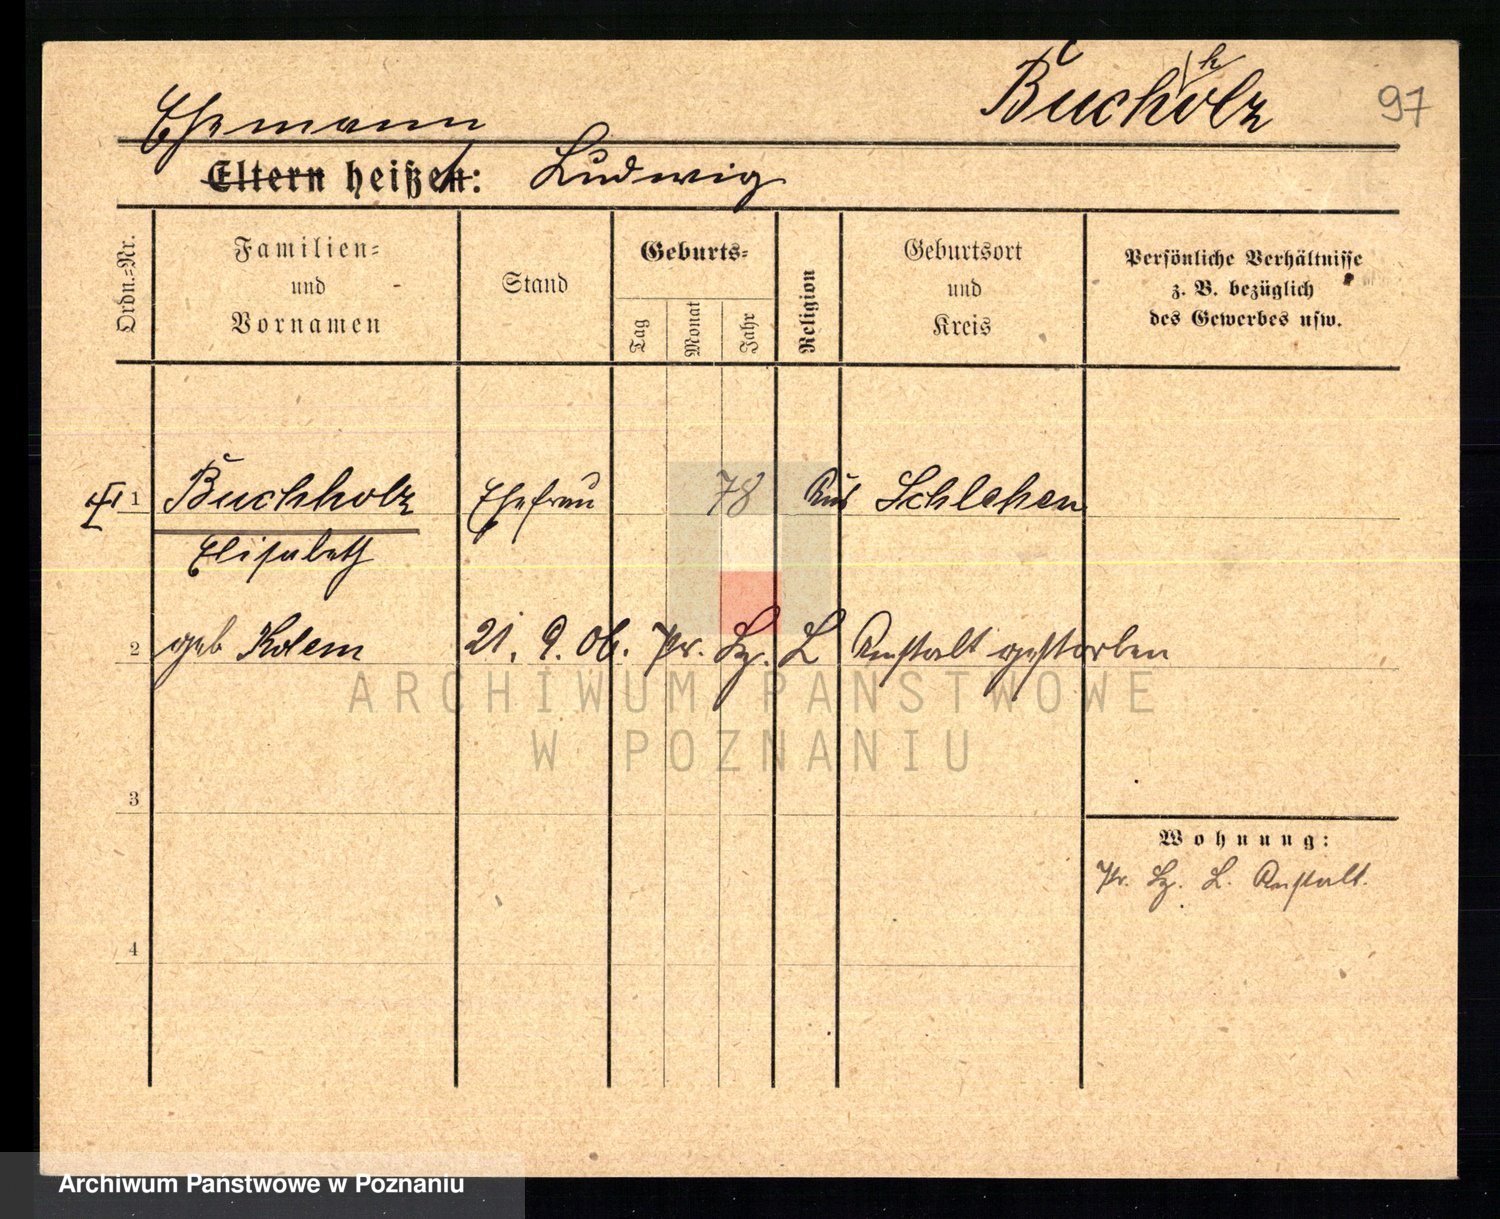 Buchholz
97
Ehemann
Eltern heißen: Ludwig
Ordn.-Nr.
Familien-
und
Vornamen
Stand
Geburts-
Tag
Monat
Jahr
Religion
Geburtsort
und
Kreis
Persönliche Verhältnisse
z. B. bezüglich
des Gewerbes usw.
1 Buchholz Ehefrau 78 Aus Schlehen
Elisabeth
2 geb 21. 9. 06. Pr. L Anstalt gestorben
ARCHIWUM PAŃSTWOWE
W POZNANIU
3
Wohnung:
Pr. L. Anstalt.
4
Archiwum Państwowe w Poznaniu